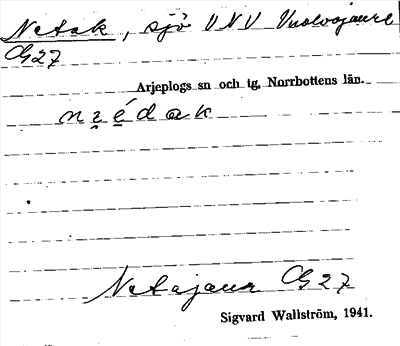 Netak, sjö VNV Vuolvojaure
CG27
Arjeplogs sn och tg, Norrbottens län.
niẹ́dak
Netajaur CG 27
Sigvard Wallström, 1941.